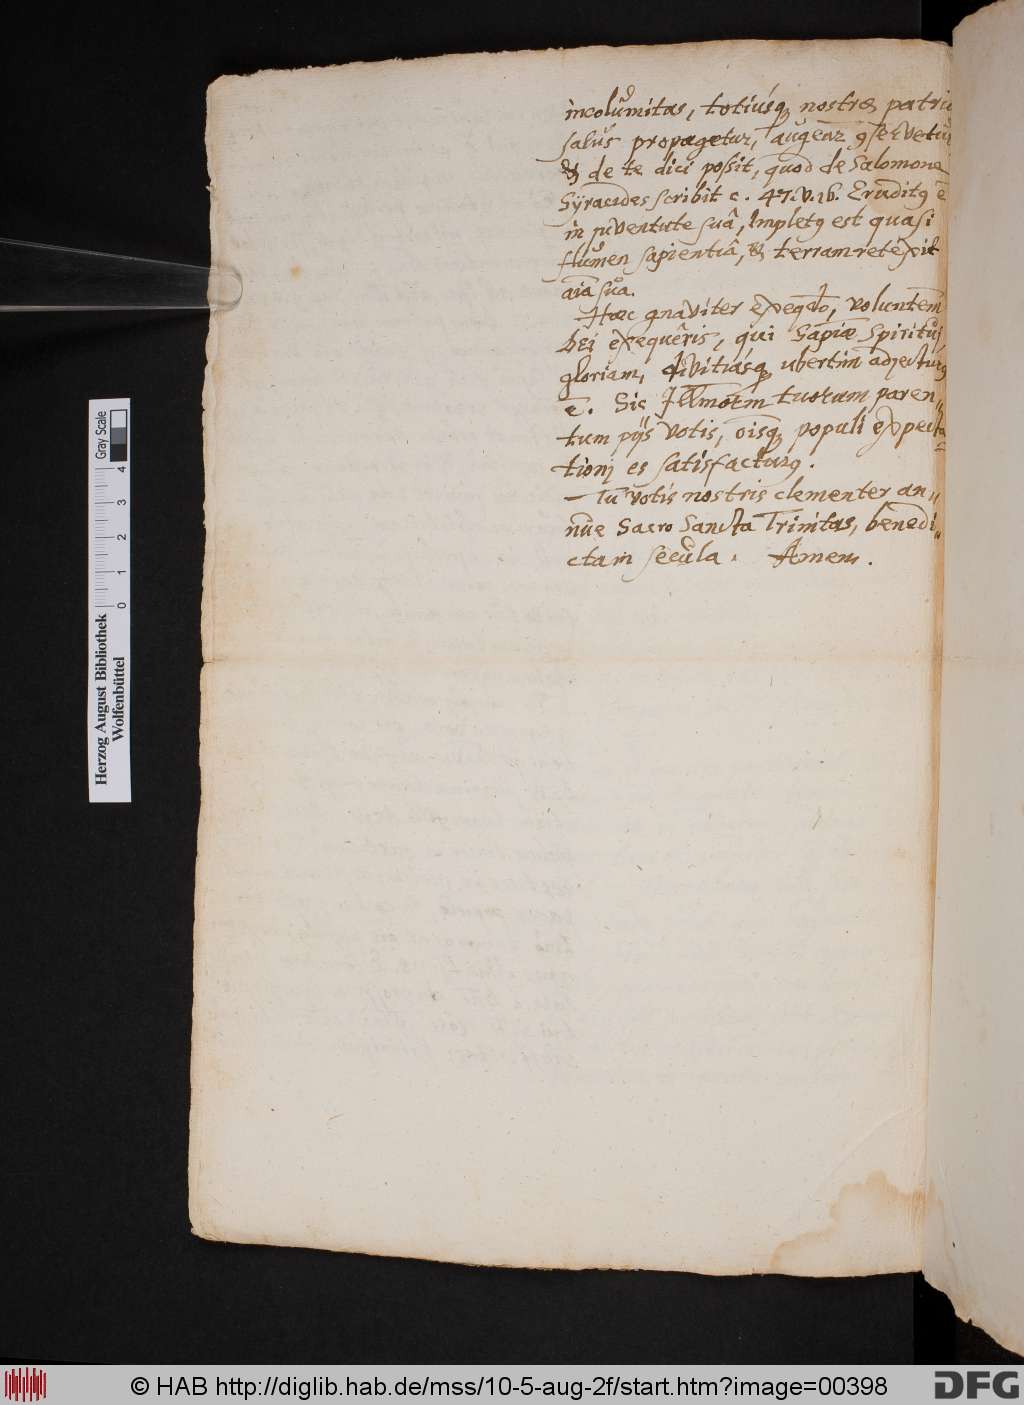 incolumitas, totiusq nostræ patriæ
salus propagetur, augeatr ꝯservetur
& de te dici poßit, quod de Salomone
Syracides scribit c. 47. v. 16. Eruditꝯ ē
in juventute suâ, Impletꝯ est quasi
flumen sapientiâ, & terram retexit
aīa sua.
Hæc gnaviter exeqdo, voluntēm
Dei exequêris, qui Sapīæ Spiritus
gloriam, divitiásq ubertim adjecturꝯ
ē. Sic Illmorm tuorum paren„
tum pijs votis, oīsq populi expecta
tioni es satisfacturꝯ.
Tu votis nostris clementer an„
nue Sacro Sancta Trinitas, benedi„
ctam secula. Amen.
Herzog August Bibliothek
Wolfenbüttel
0 1 2 3 4
Gray Scale
© HAB http://diglib.hab.de/mss/10-5-aug-2f/start.htm?image=00398
DFG